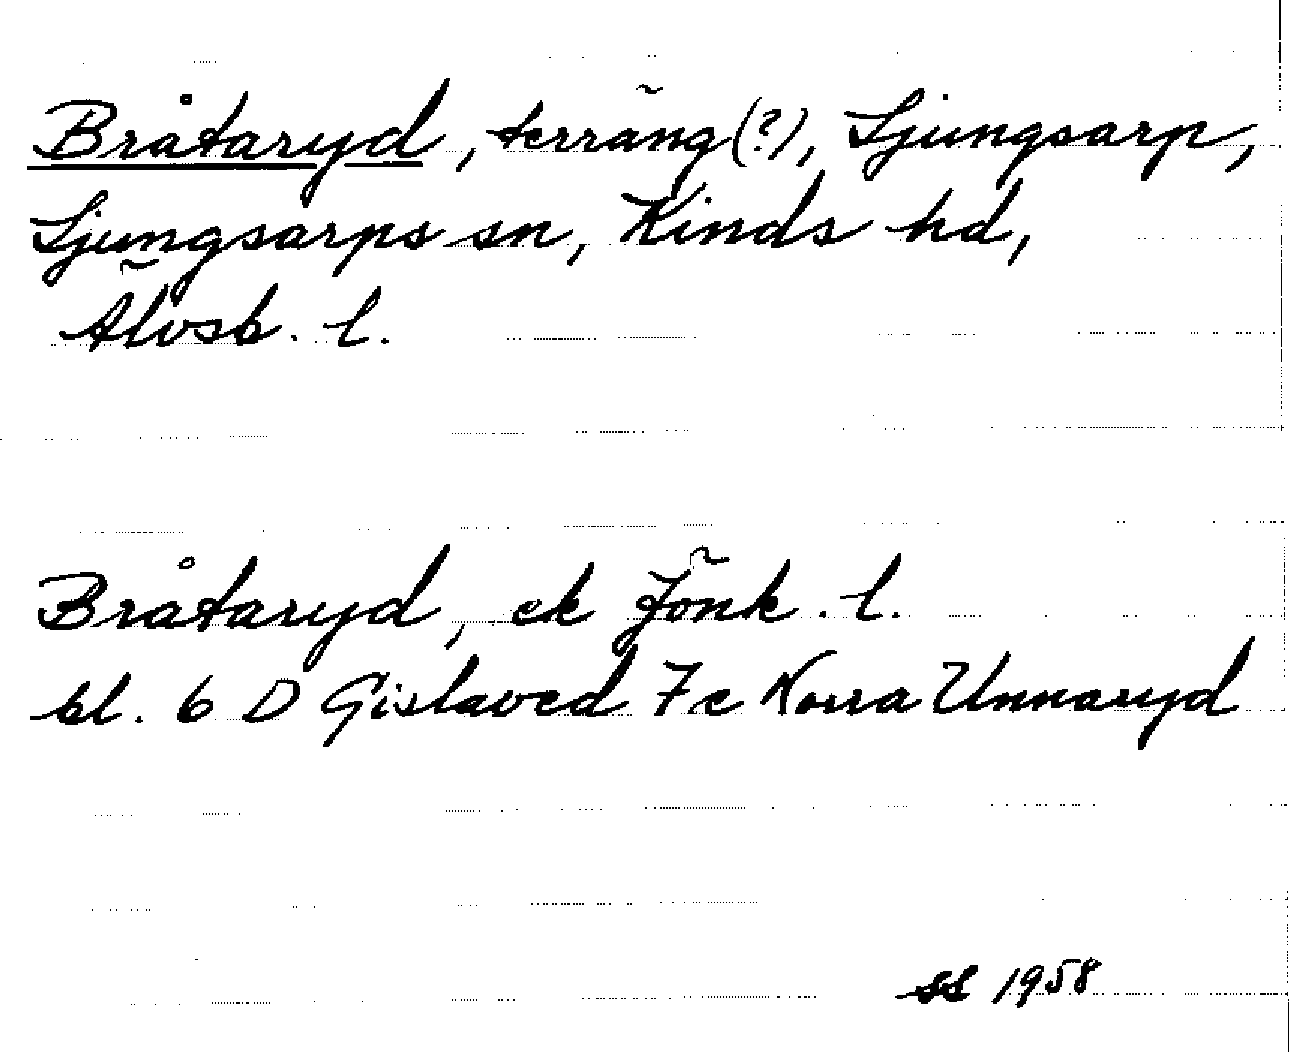 Bråtaryd, terräng (?), Ljungsarp,
Ljungsarps sn, Kinds hd,
Älvsb. l.
Bråtaryd, ek Jönk. l.
bl. 6 D Gislaved 7c Norra Unnaryd
SS 1958